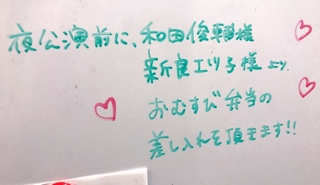 夜公演前に、和田俊輔様
新良エツ子様より
おむすび弁当の
差し入れを頂きます!!